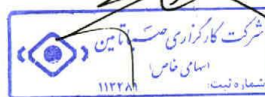 شرکت کارگزاری صبا تامین
(سهامی خاص)
شماره ثبت: ۱۱۲۲۸۹